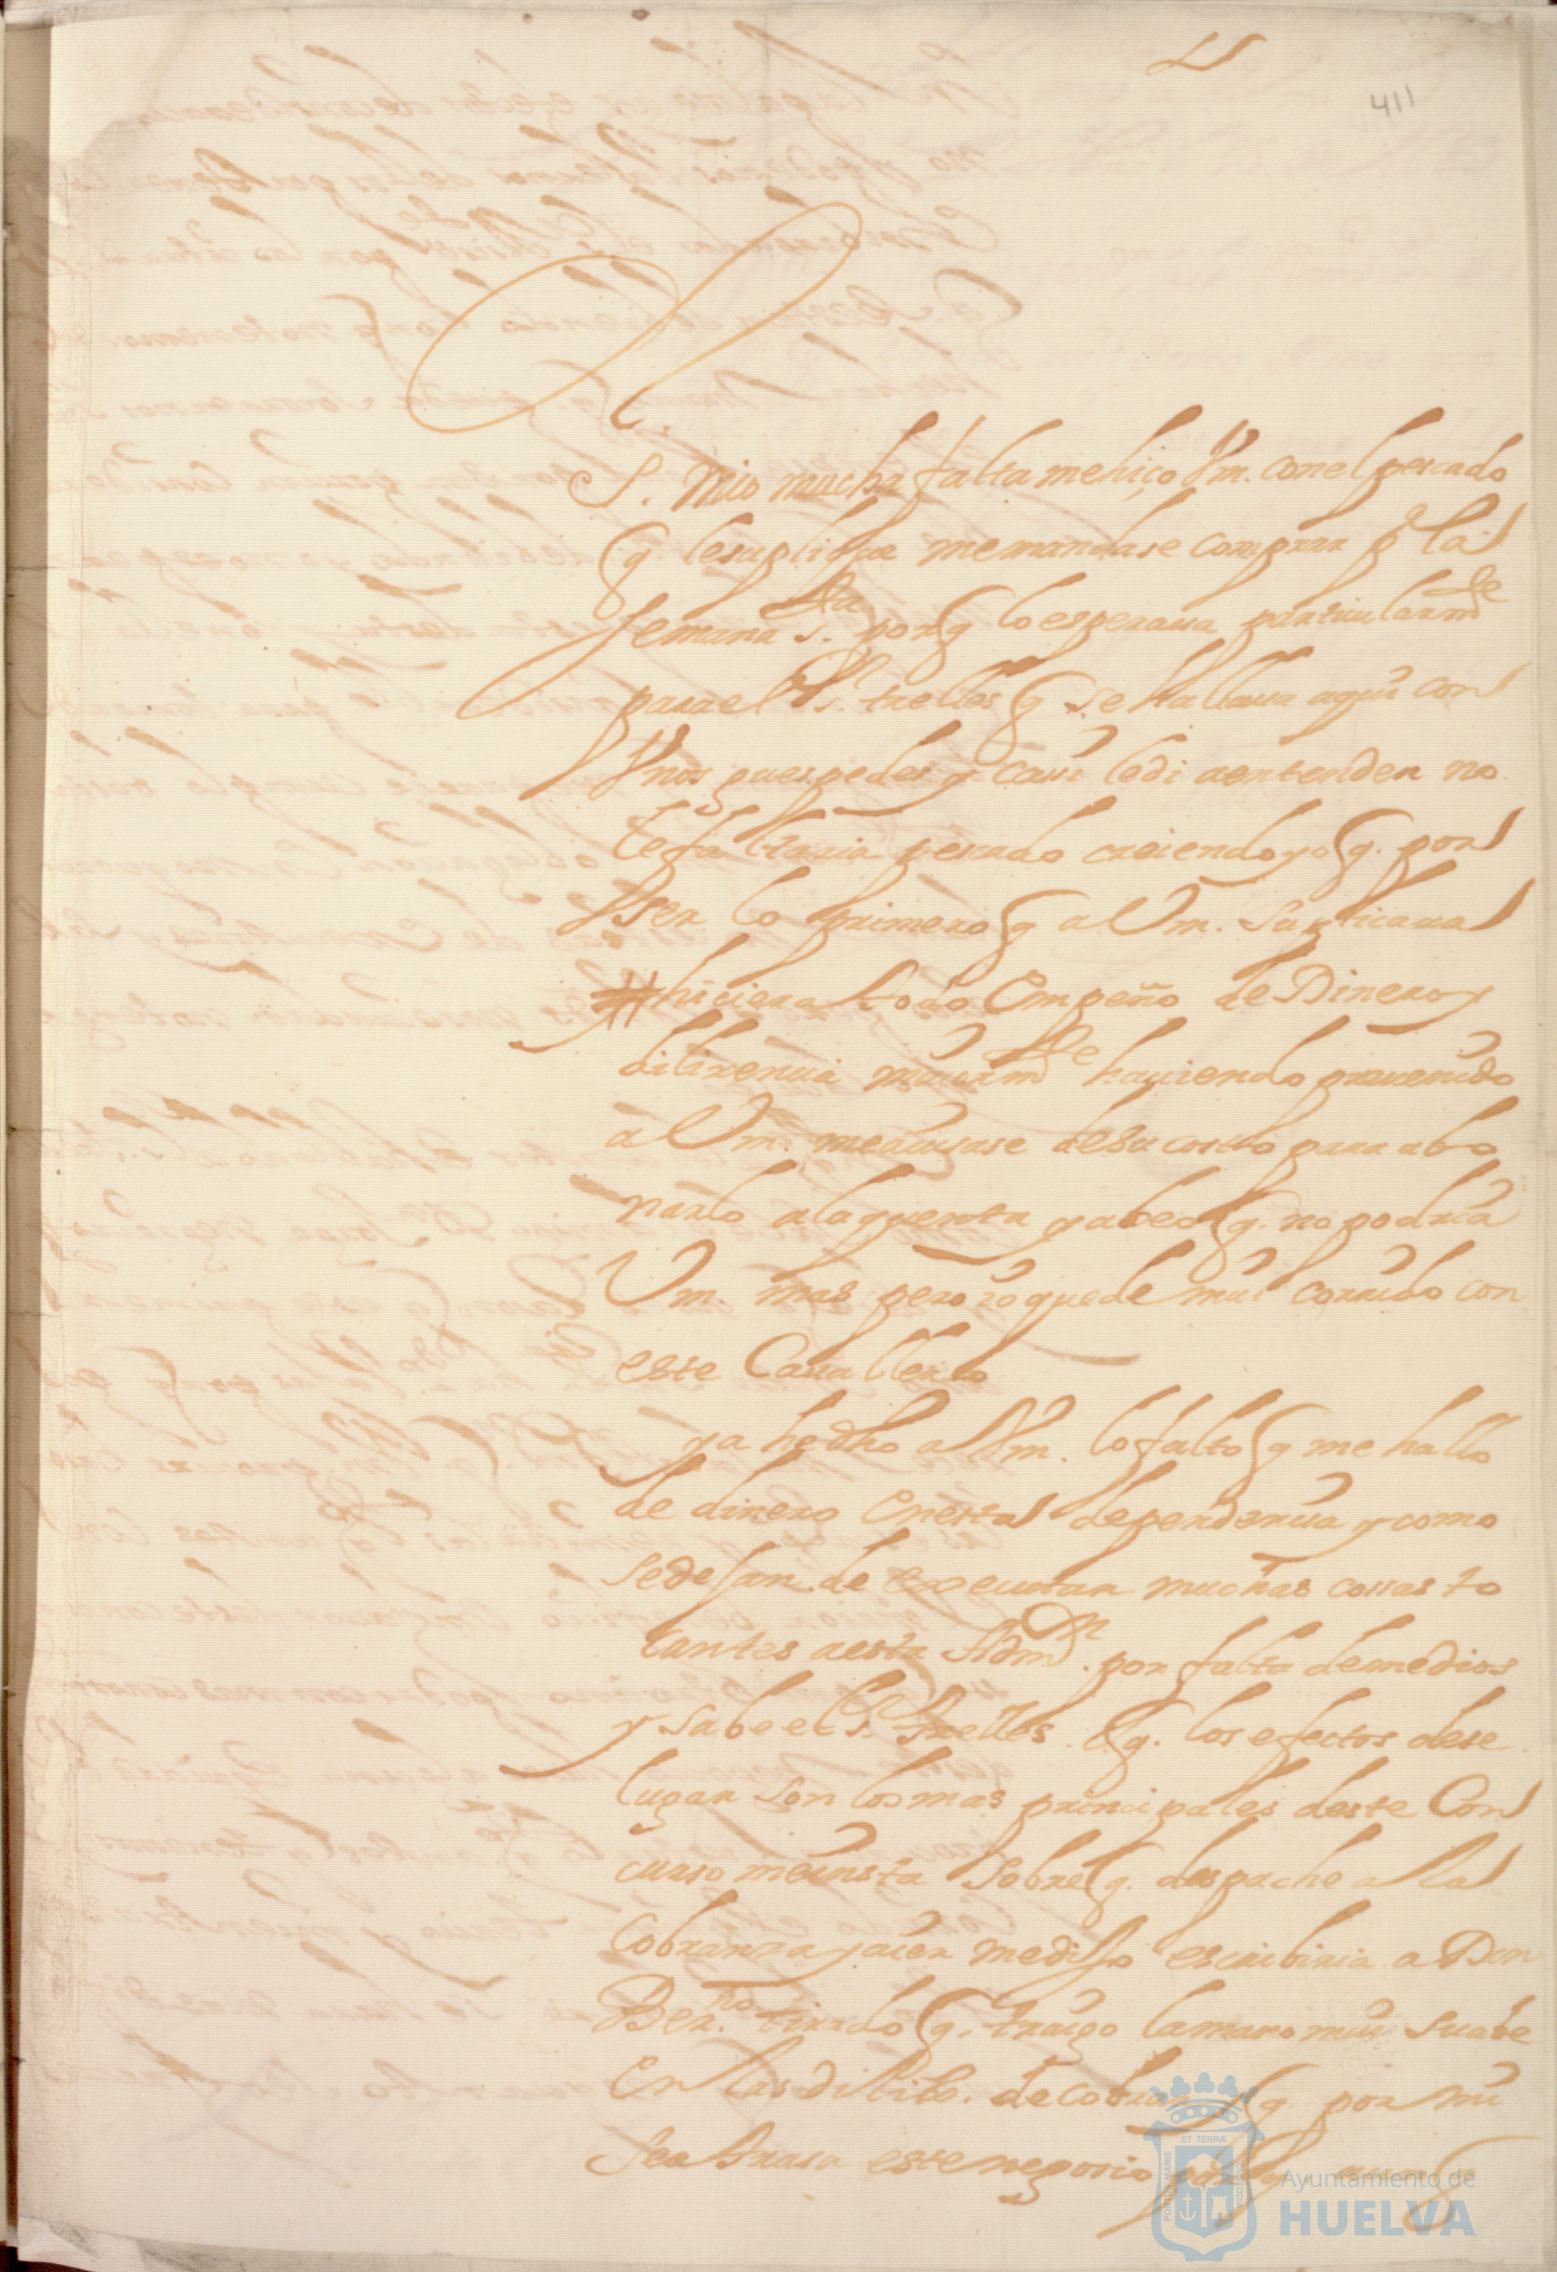 411
S. Mio mucha falta me hiço Vm. con el pescado
q le suplique me mandase comprar pª la
semana s.ta porq lo esperaua particularmde
para el s.r trelles q se hallaua aqui con
Vnos guespedes y casi le di a entender no
le faltaria pescado creiendo yo q. por
ser lo primero q a Vm. suplicaua
hiciera todo Empeño de Dinero y
dilixencia maiormde hauiendo preuenido
a Vm. me auisase de su costo para abo
narlo a la quenta y a beo q. no podria
Vm. mas pero io quede mui corrido con
este Cauallero
ya he dho a Vm. lo falto q me hallo
de dinero En esta dependencia y como
se dejan de executar muchas cosas to
cantes a esta Adm.on por falta de medios
y sabe el s.r trelles q. los efectos dese
lugar son los mas principales deste Con
curso me insta sobre q. despache a la
Cobranza y aier me dijo escribiria a Don
Ber.no tirado q. traigo la mano mui suabe
En las dilib. de cobrar q. por mi
se atrasa este negocio porq. aunq
ET TERRÆ
PORTUS MARIS
CUSTODIA
Ayuntamiento de
HUELVA